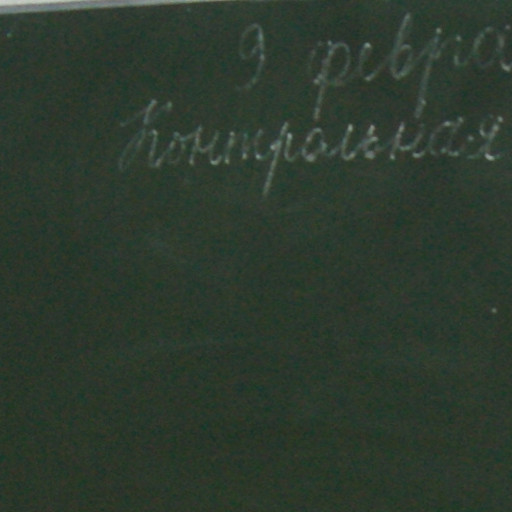 9 февра
Контральная